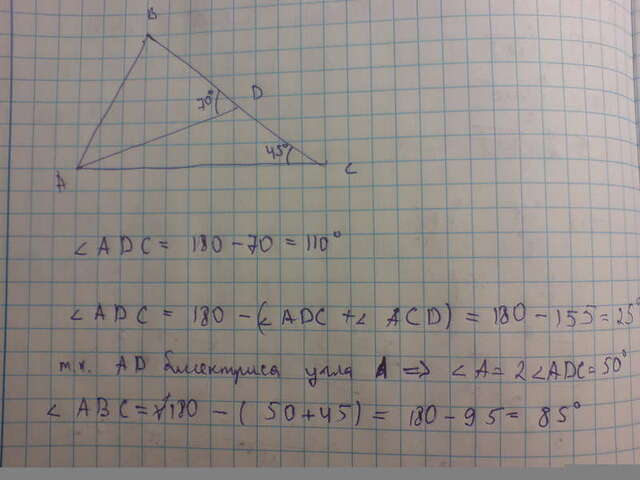 B
70° D
45°
A C
∠ADC = 180 - 70 = 110°
∠ADC = 180 - (∠ADC + ∠ACD) = 180 - 155 = 25°
т.к. AD биссектриса угла A => ∠A = 2∠ADC = 50°
∠ABC = 180 - (50 + 45) = 180 - 95 = 85°